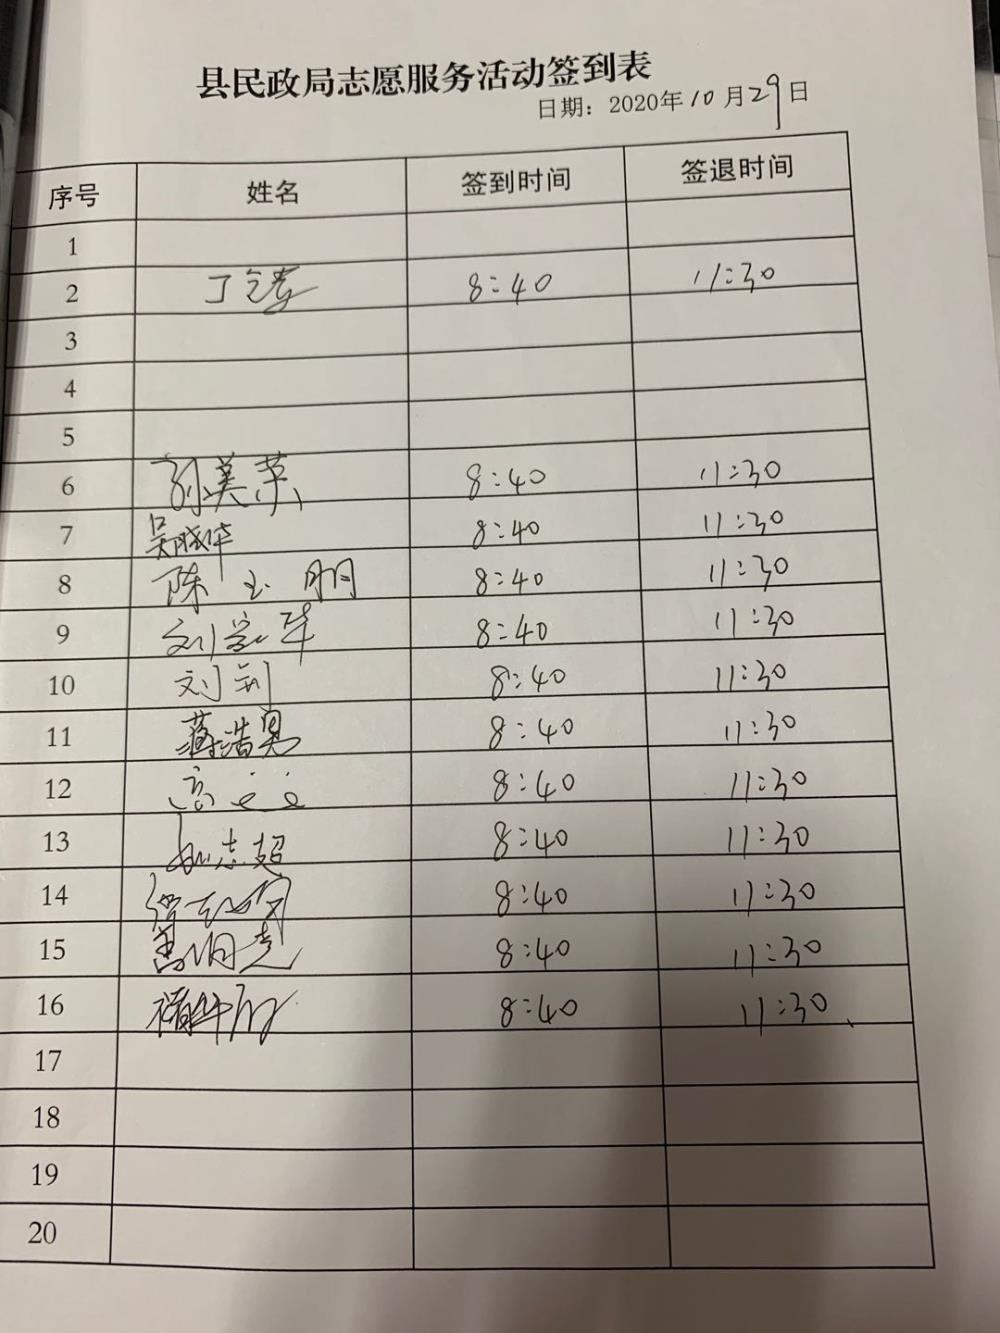 县民政局志愿服务活动签到表
日期：2020年10月29日
序号 姓名 签到时间 签退时间
1
2 丁 8:40 11:30
3
4
5
6 孙美荣 8:40 11:30
7 吴晓华 8:40 11:30
8 陈玉朋 8:40 11:30
9 刘 华 8:40 11:30
10 刘利 8:40 11:30
11 蒋浩 8:40 11:30
12 高 8:40 11:30
13 志超 8:40 11:30
14 8:40 11:30
15 8:40 11:30
16 8:40 11:30
17
18
19
20